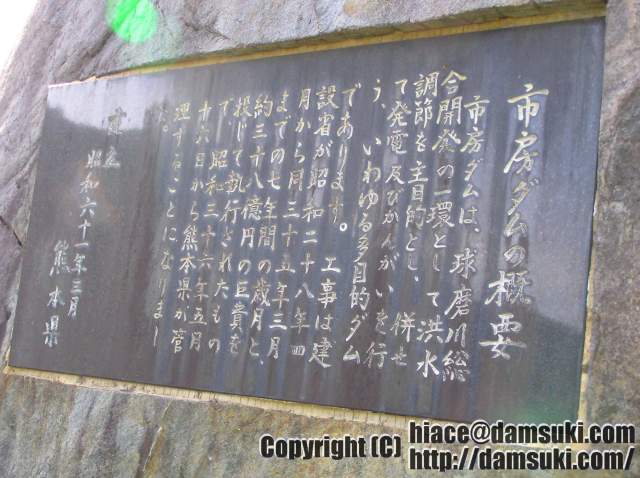 市房ダムの概要
市房ダムは、球磨川総
合開発の一環として洪水
調節を主目的とし、併せ
て発電及びかんがいを行
う、いわゆる多目的ダム
であります。工事は建
設省が昭和二十八年四
月から同三十五年三月
までの七年間の歳月と、
約三十八億円の巨費を
投じて執行されたもの
で、昭和三十六年五月
十六日から熊本県が管
理することになりまし
た。
昭和六十一年三月
熊本県
Copyright (C) hiace@damsuki.com
http://damsuki.com/